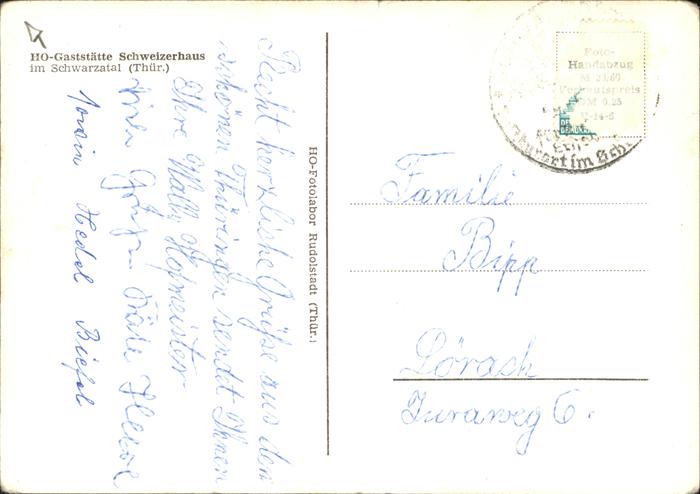 HO-Gaststätte Schweizerhaus
im Schwarzatal (Thür.)
Recht herzliche Grüße aus den
schönen Thüringen sendt Ihnen
Ihre Walli Hofmeister
Viele Grüße
sowie Hedel
HO-Fotolabor Rudolstadt (Thür.)
Foto-
Handabzug
M 23/60
Verkaufspreis
DM 0.25
V-14-6
Kurort im Sch
Familie
Bipp
Lörach
Juraweg 6.